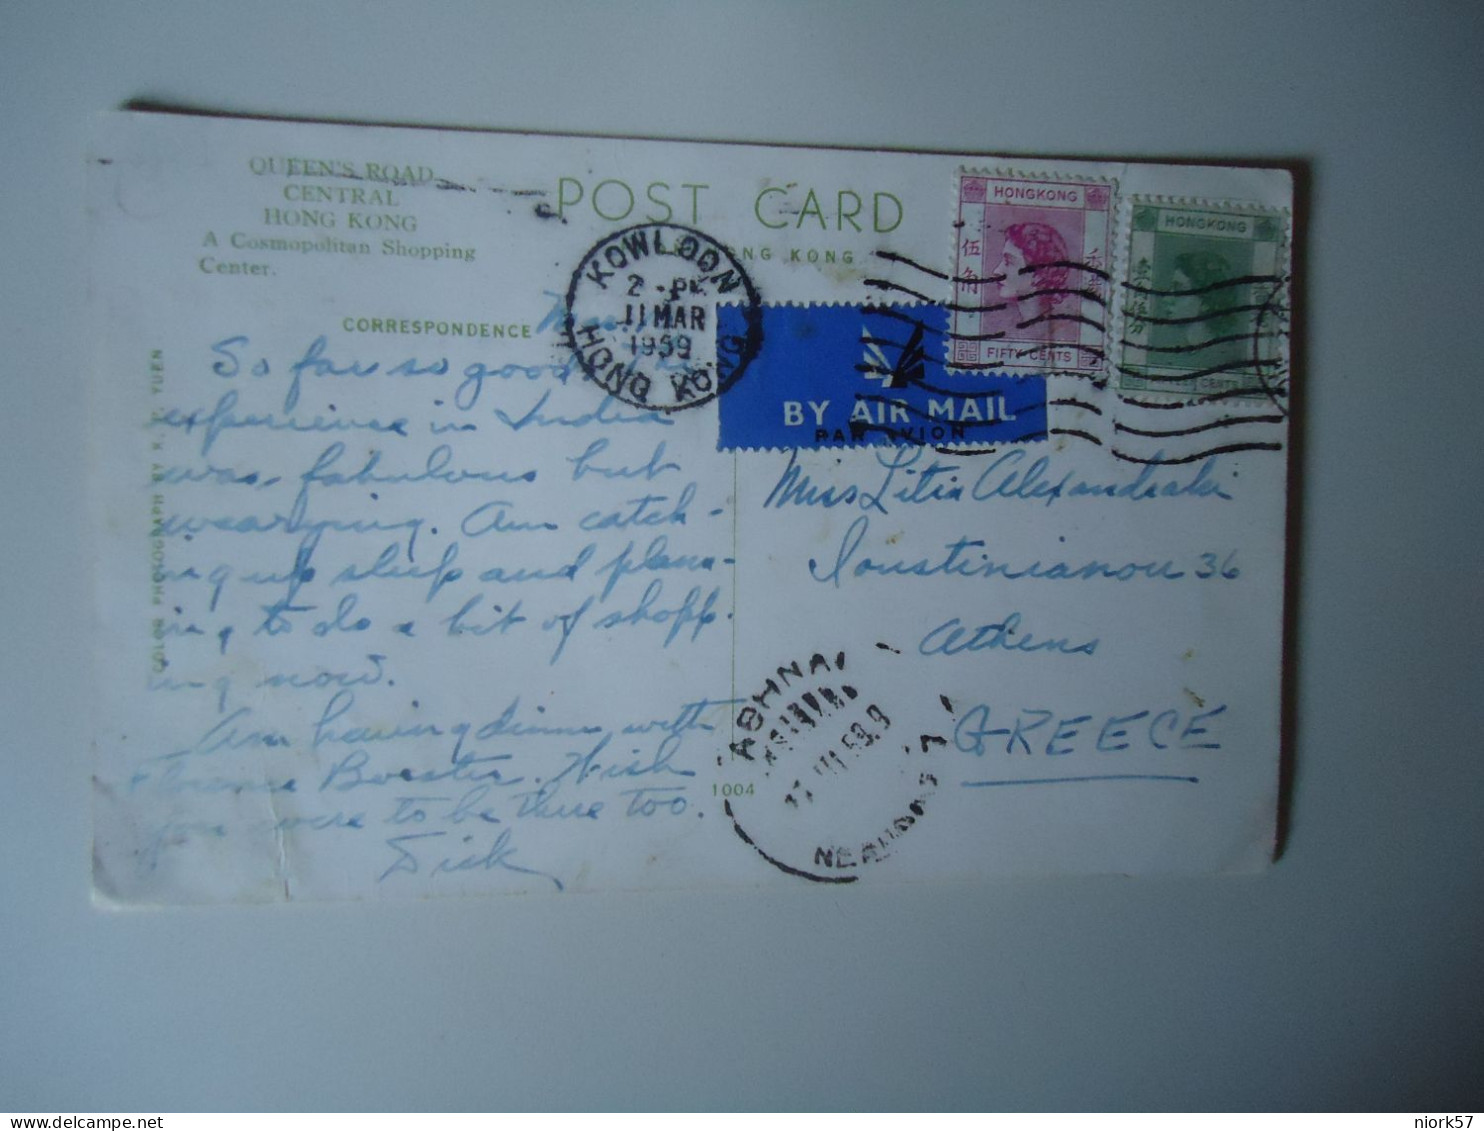 QUEEN'S ROAD
CENTRAL
HONG KONG
A Cosmopolitan Shopping
Center.
POST CARD
NG KONG
CORRESPONDENCE
KOWLOON
2 - PM
11 MAR
1959
HONG KONG
BY AIR MAIL
PAR AVION
HONGKONG
伍角
香港
FIFTY CENTS
HONGKONG
壹毫伍分
CENTS
COLOR PHOTOGRAPH BY K. Y. YUEN
So far so good. The
experience in India
was fabulous but
wearying. Am catch-
ing up sleep and plann-
ing to do a bit of shopp-
ing now.
Am having dinner with
Florence Boester. Wish
you were to be there too.
Dick
Miss Litia Alexandraki
Ioustinianou 36
Athens
GREECE
1004
ΑΘΗΝΑΙ